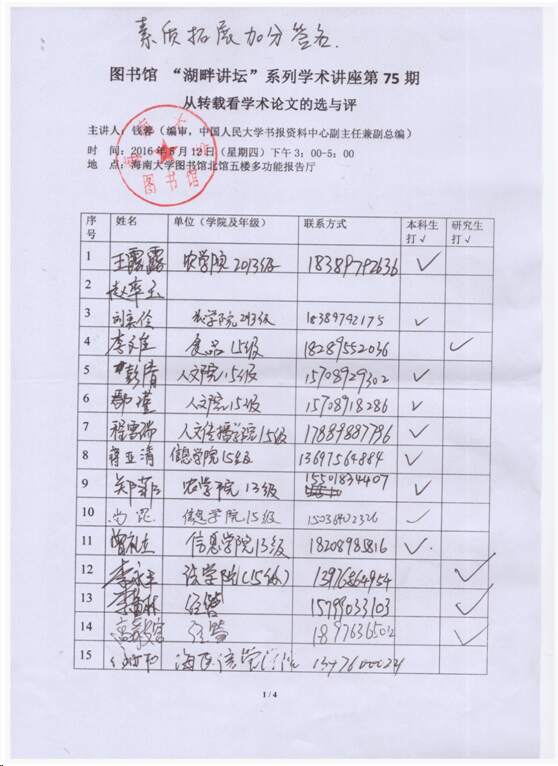 素质拓展加分签名.
图书馆 “湖畔讲坛”系列学术讲座第 75 期
从转载看学术论文的选与评
主讲人：钱蓉（编审，中国人民大学书报资料中心副主任兼副总编）
时 间：2016年5月12日（星期四）下午3：00-5：00
地 点：海南大学图书馆北馆五楼多功能报告厅
图书馆
序号 姓名 单位（学院及年级） 联系方式 本科生打√ 研究生打√
1 王露露 农学院 2013级 18389792636 ✓
2
3 农学院2013级 18389792175 ✓
4 食品15级 18289552036 ✓
5 彭清 人文院15级 15708929302 ✓
6 鄢瑾 人文院.15级 15708918286 ✓
7 程雪瑞 人文传播学院15级 17889887796 ✓
8 蒋亚清 信息学院15级 13697564884 ✓
9 郑菲 农学院13级 15501834407 ✓
10 信息学院15级 15036402326 ✓
11 曾礼 信息学院13级 18208985816 ✓
12 李 法学院(15级) 13976864954 ✓
13 李 林 经管 15799033103 ✓
14 高 经管 ✓
15
1 / 4